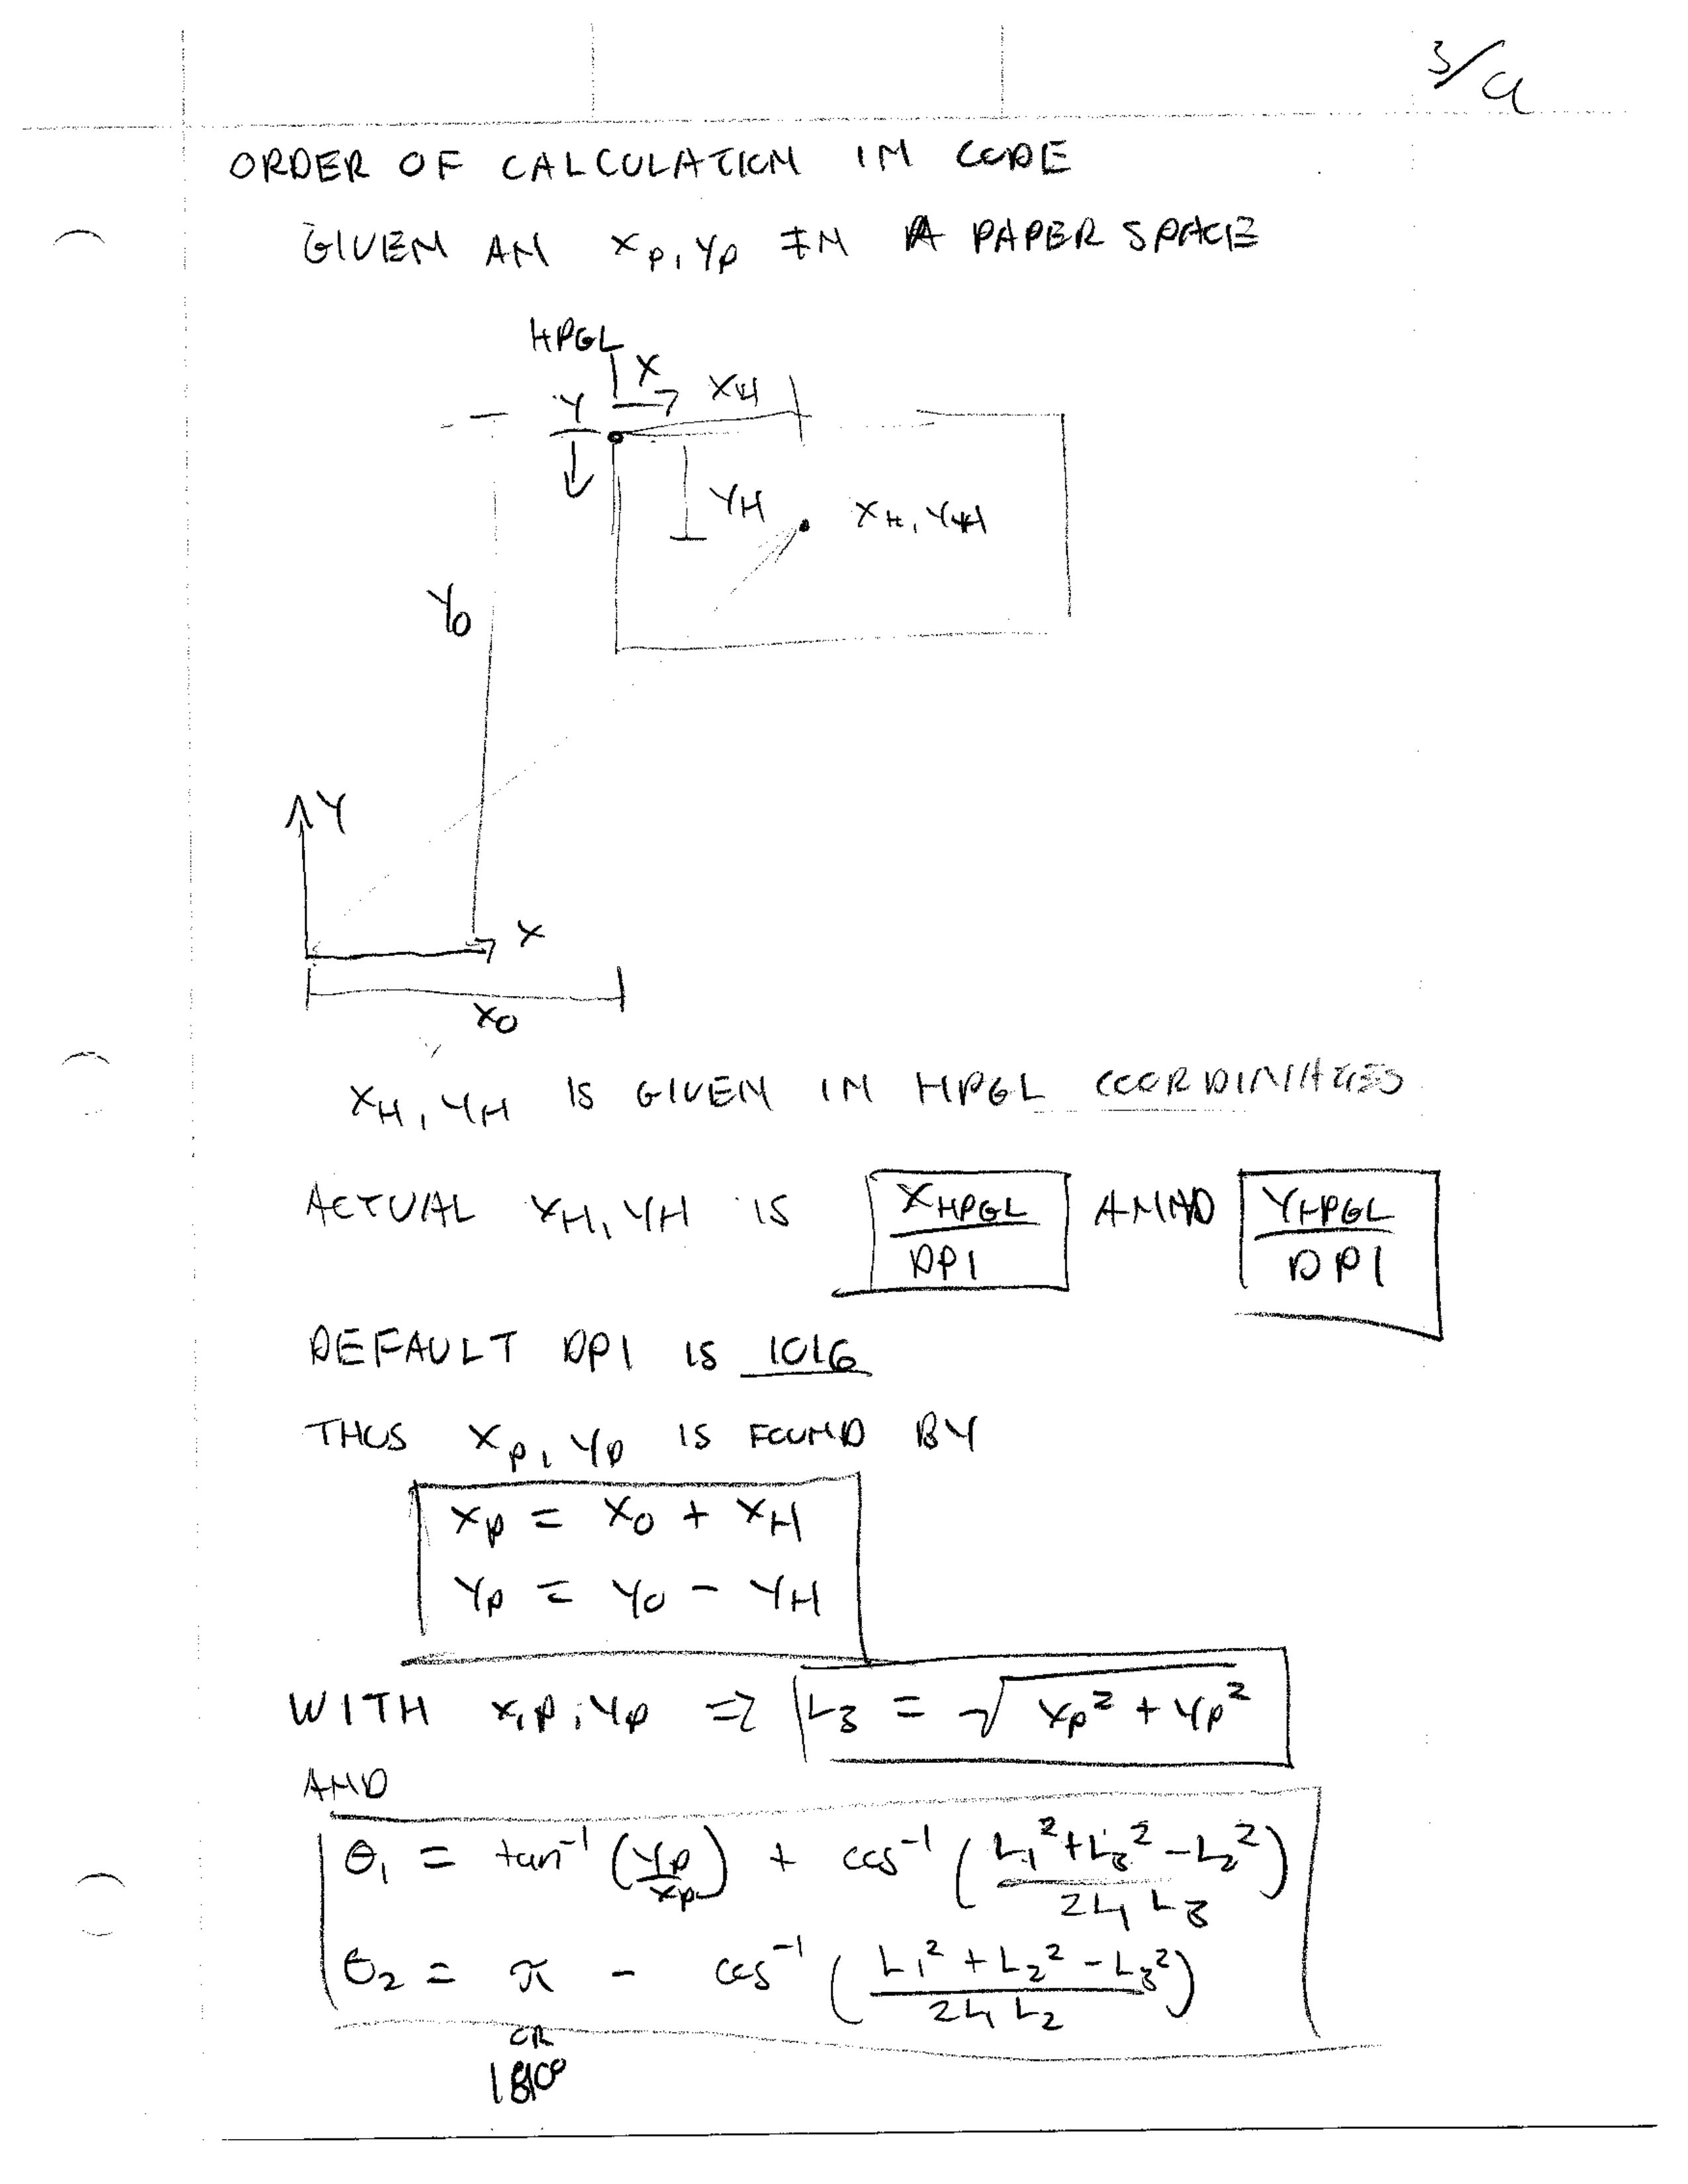 3/a
ORDER OF CALCULATION IN CODE
GIVEN AN Xp, Yp IN A PAPER SPACE
HPGL
X
Y
XH
YH
XH, YH
Y0
Y
X
X0
XH, YH IS GIVEN IN HPGL COORDINATES
ACTUAL XH, YH IS XHPGL/DPI AND YHPGL/DPI
DEFAULT DPI IS 1016
THUS Xp, Yp IS FOUND BY
Xp = X0 + XH
Yp = Y0 - YH
WITH Xp, Yp => L3 = √(Xp² + Yp²)
AND
θ1 = tan⁻¹(Yp/Xp) + cos⁻¹((L1² + L3² - L2²)/(2L1 L3))
θ2 = π - cos⁻¹((L1² + L2² - L3²)/(2L1 L2))
OR
180°